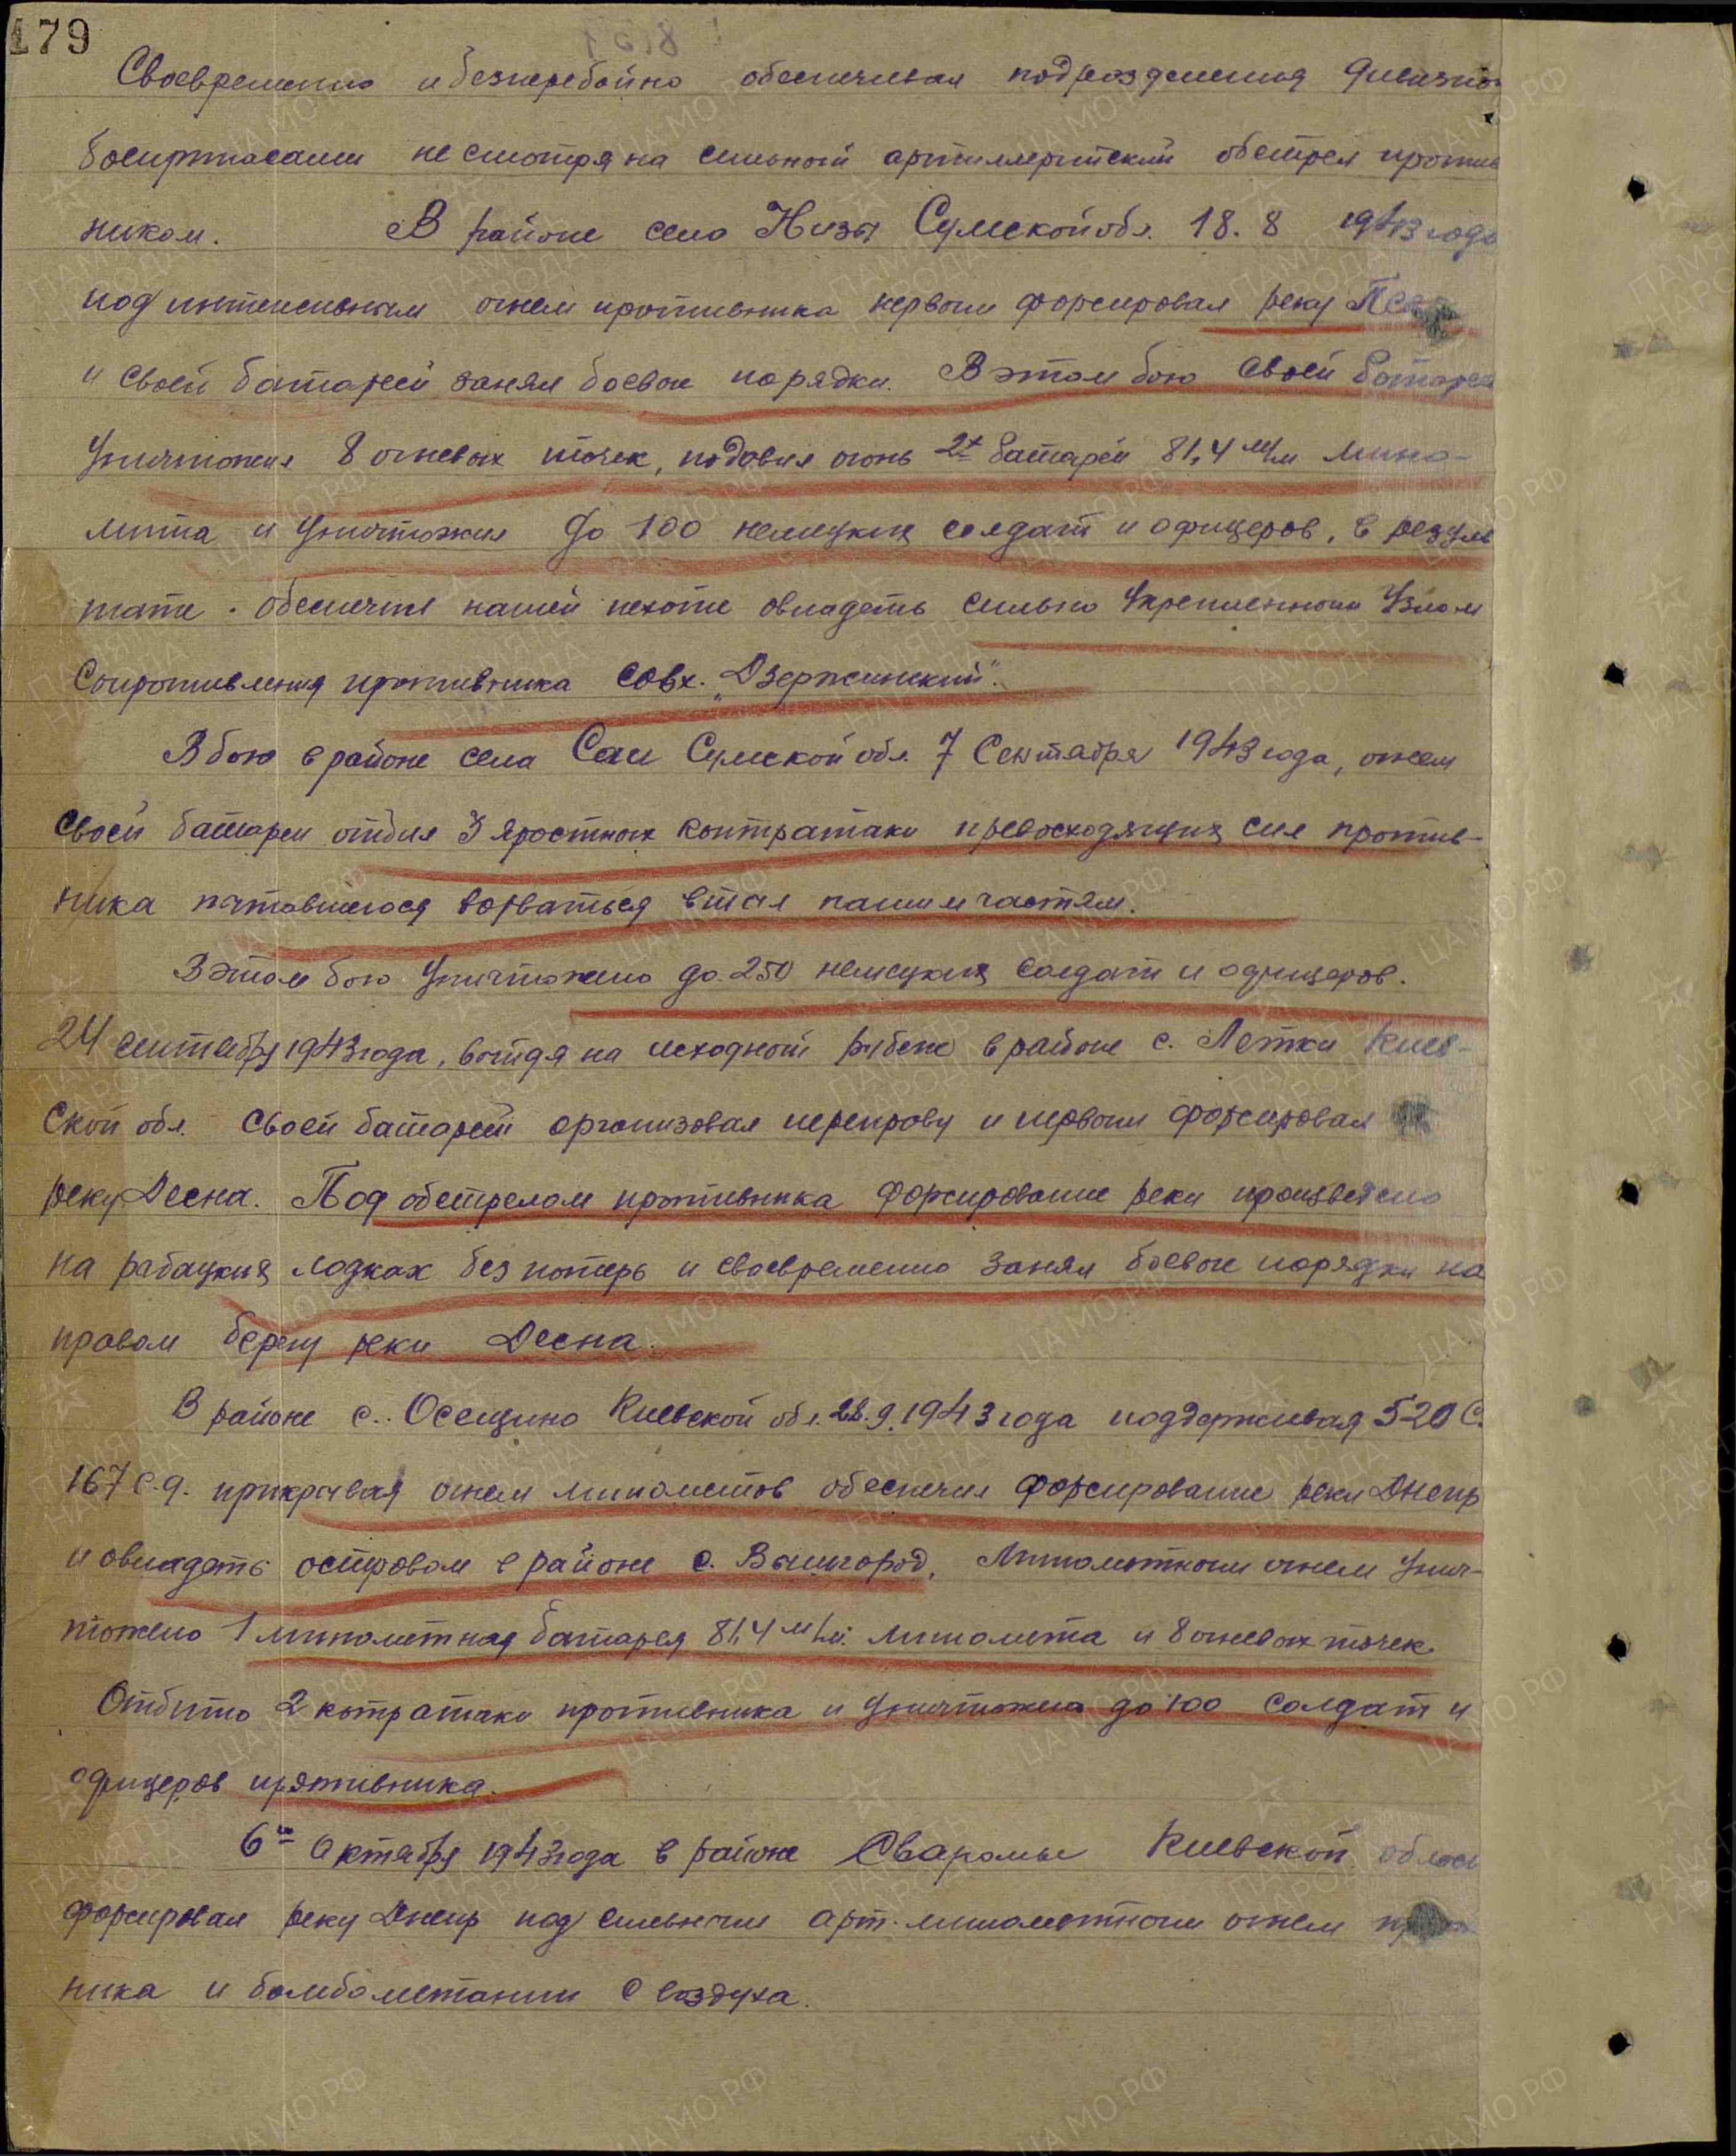 179
Своевременно и безперебойно обеспечивая подразделения дивизио
боеприпасами не смотря на сильный артиллерийский обстрел против
ником. В районе село Низы Сумской обл. 18.8 1943 года
под интенсивным огнем противника первым форсировал реку Псел
и своей батареей занял боевые порядки. В этом бою своей батареей
уничтожил 8 огневых точек, подавил огонь 2х батарей 81,4 м/м мино-
мета и уничтожил до 100 немецких солдат и офицеров, в резуль
тате обеспечил нашей пехоте овладеть сильно укрепленным узлом
Сопротивления противника совх. „Дзержинский".
В бою в районе села Саи Сумской обл. 7 Сентября 1943 года, огнем
своей батареи отбил 3 яростных контратаки превосходящих сил против-
ника пытавшегося ворваться в тыл нашим частям.
В этом бою уничтожено до 250 немецких солдат и офицеров.
24 сентября 1943 года, выйдя на исходный рубеж в районе с. Летки Киев-
ской обл. своей батареей организовал переправу и первым форсировал
реку Десна. Под обстрелом противника форсирование реки произведено
на рабацких лодках без потерь и своевременно занял боевые порядки на
правом берегу реки Десна.
В районе с. Осещино Киевской обл. 28.9.1943 года поддерживая 520 С.
167 с.д. прикрывая огнем минометов обеспечил форсирование реки Днепр
и овладеть островом в районе с. Вышгород. Минометным огнем унич-
тожено 1 минометная батарея 81,4 м/м. миномета и 8 огневых точек.
Отбито 2 контратаки противника и уничтожено до 100 солдат и
офицеров противника.
6го Октября 1943 года в районе Сваромье Киевской облас
форсировал реку Днепр под сильным арт. минометным огнем
ника и бомбометании с воздуха.